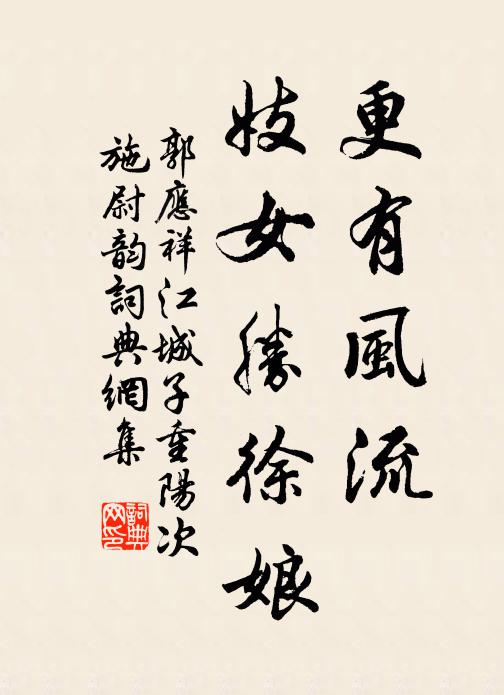 更有風流
妓女勝徐娘
郭應祥江城子重陽次
施尉韵詞典網集
詞典
网印